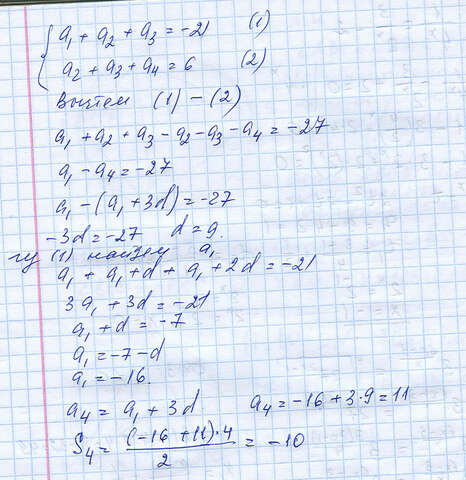 a₁ + a₂ + a₃ = -21 (1)
a₂ + a₃ + a₄ = 6 (2)
Вычтем (1) - (2)
a₁ + a₂ + a₃ - a₂ - a₃ - a₄ = -27
a₁ - a₄ = -27
a₁ - (a₁ + 3d) = -27
-3d = -27 d = 9.
из (1) найдем a₁
a₁ + a₁ + d + a₁ + 2d = -21
3a₁ + 3d = -21
a₁ + d = -7
a₁ = -7 - d
a₁ = -16.
a₄ = a₁ + 3d a₄ = -16 + 3·9 = 11
S₄ = (-16 + 11)·4 / 2 = -10